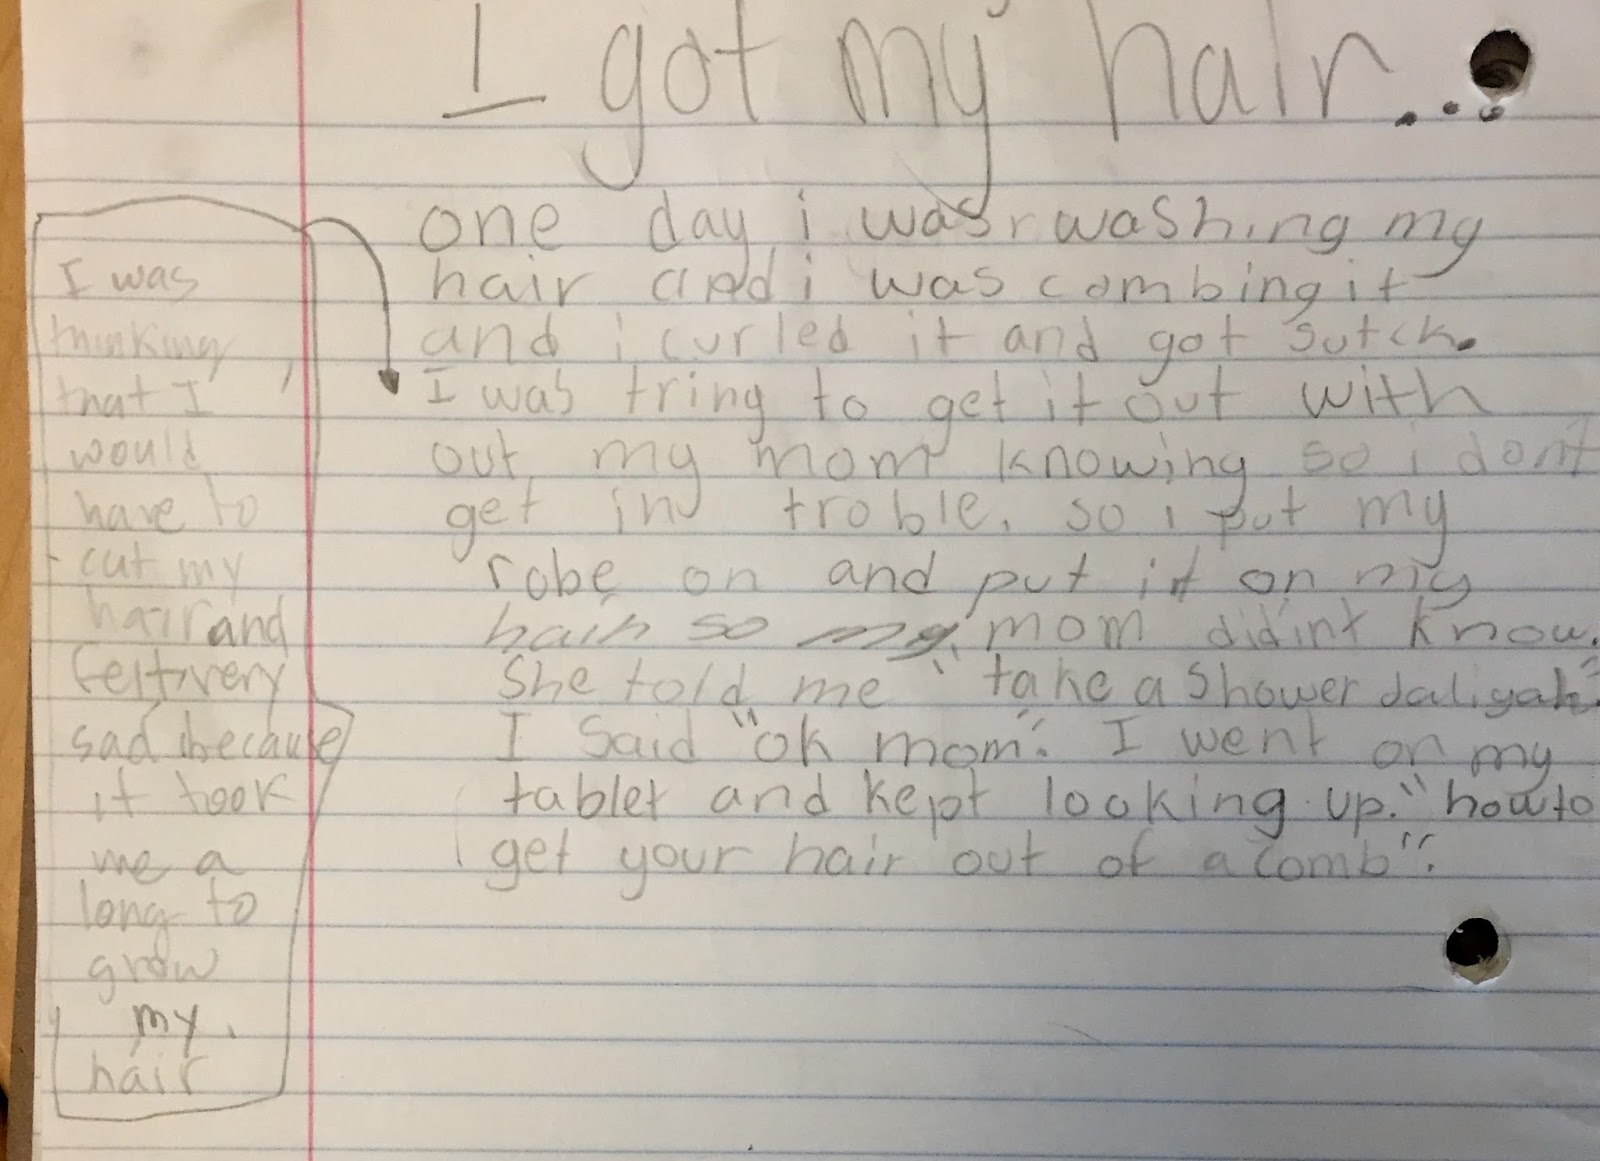 I got my hair...
one day i was washing my
hair and i was combing it
and i curled it and got sutck.
I was tring to get it out with
out my mom knowing so i dont
get in troble. so i put my
robe on and put it on my
hair so my mom did'int know.
She told me "take a shower daliyah"
I said "ok mom". I went on my
tablet and kept looking up. "how to
get your hair out of a comb".
I was
thinking
that I
would
have to
cut my
hair and
felt very
sad because
it took
me a
long to
grow
my
hair